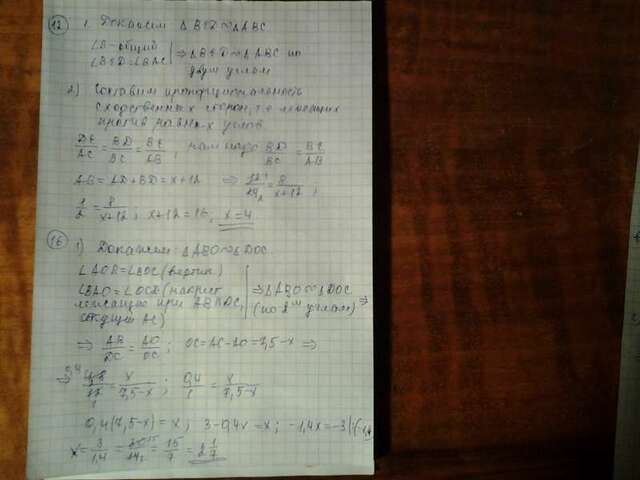 12) 1. Докажем △BED ~ △ABC
∠B - общий
∠BED = ∠BAC | ⇒ △BED ~ △ABC по двум углам
2) Составим пропорциональность
сходственных сторон, т.е лежащих
против равных углов
DE/AC = BD/BC = BE/AB ; нам надо BD/BC = BE/AB
AB = AD + BD = x+12 ⇒ 12/24 = 8/(x+12) ;
1/2 = 8/(x+12) ; x+12 = 16; x=4
16) 1) Докажем △ABO ~ △DOC
∠AOB = ∠DOC (вертик)
∠BAO = ∠OCD (накрест
лежащие при AB∥DC, секущей AC) | ⇒ △ABO ~ △DOC (по 2м углам) ⇒
⇒ AB/DC = AO/OC ; OC = AC - AO = 7,5 - x ⇒
x/(7,5-x) ; 0,4/1 = x/(7,5-x)
0,4(7,5-x) = x; 3-0,4x = x; -1,4x = -3 |:(-1,4)
x = 3/1,4 = 15/7 = 2 1/7